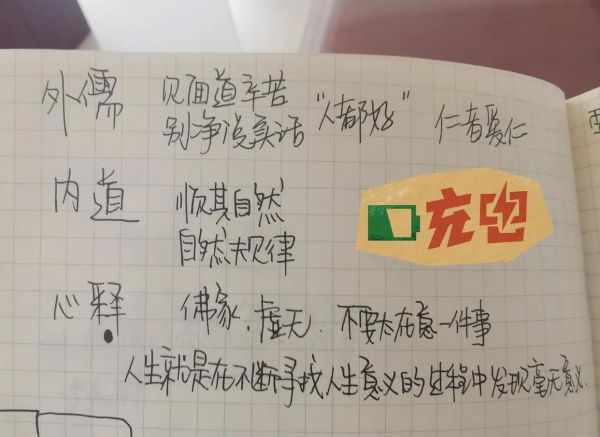 外儒 见面道辛苦 "人都好" 仁者爱仁
别争说实话
内道 顺其自然
自然规律
充电
心释 佛家、虚无、不要太在意一件事
人生就是在不断寻找人生意义的过程中发现毫无意义.